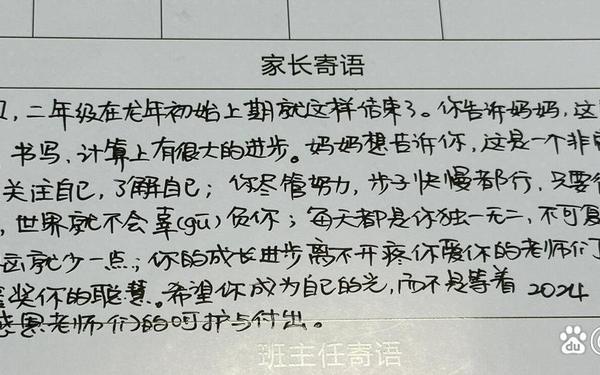 家长寄语
二年级在龙年初始上期就这样结束了。你告诉妈妈,这
书写,计算上有很大的进步。妈妈想告诉你,这是一个非常
关注自己,了解自己;你尽管努力,步子快慢都行,只要
,世界就不会辜(gū)负你;每天都是你独一无二,不可复
就少一点;你的成长进步离不开疼你爱你的老师们
奖你的聪慧。希望你成为自己的光,而不是等着 2024
感恩老师们的呵护与付出。
班主任寄语
Bai du